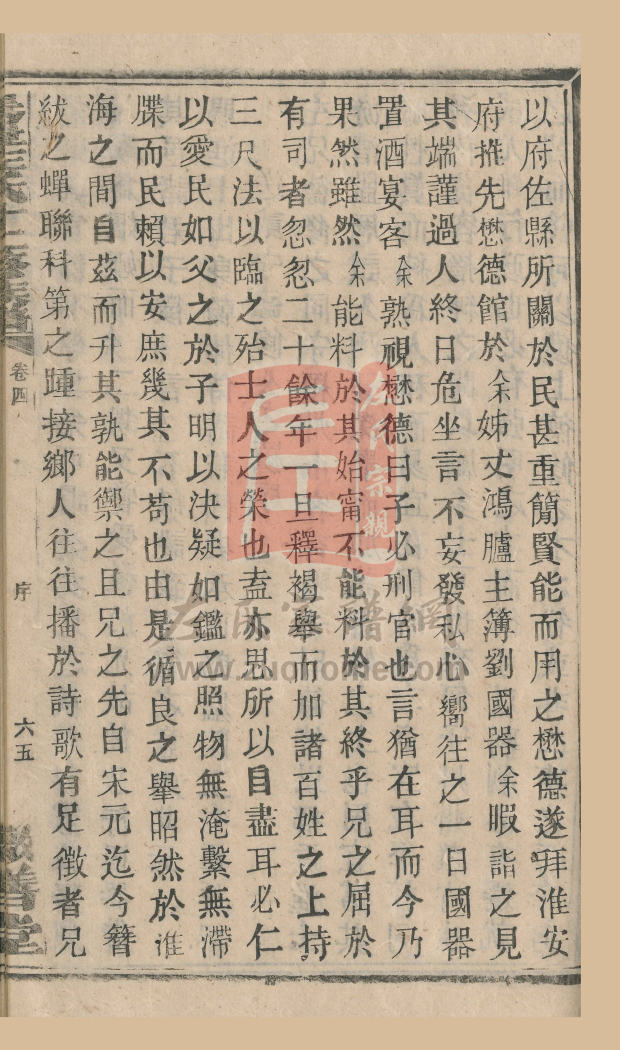 以府佐縣所關於民甚重簡賢能而用之懋德遂拜淮安
府推先懋德館於余姊丈鴻臚主簿劉國器余暇詣之見
其端謹過人終日危坐言不妄發私心嚮往之一日國器
置酒宴客余熟視懋德曰子必刑官也言猶在耳而今乃
果然雖然余能料於其始甯不能料於其終乎兄之屈於
有司者忽忽二十餘年一旦釋褐舉而加諸百姓之上持
三尺法以臨之殆士人之榮也盍亦思所以自盡耳必仁
以愛民如父之於子明以決疑如鑑之照物無淹繫無滯
牒而民賴以安庶幾其不苟也由是循良之舉昭然於淮
海之間自茲而升其孰能禦之且兄之先自宋元迄今簪
紱之蟬聯科第之踵接鄉人往往播於詩歌有足徵者兄
卷四
序
六五
善堂
www.zuqiide.com